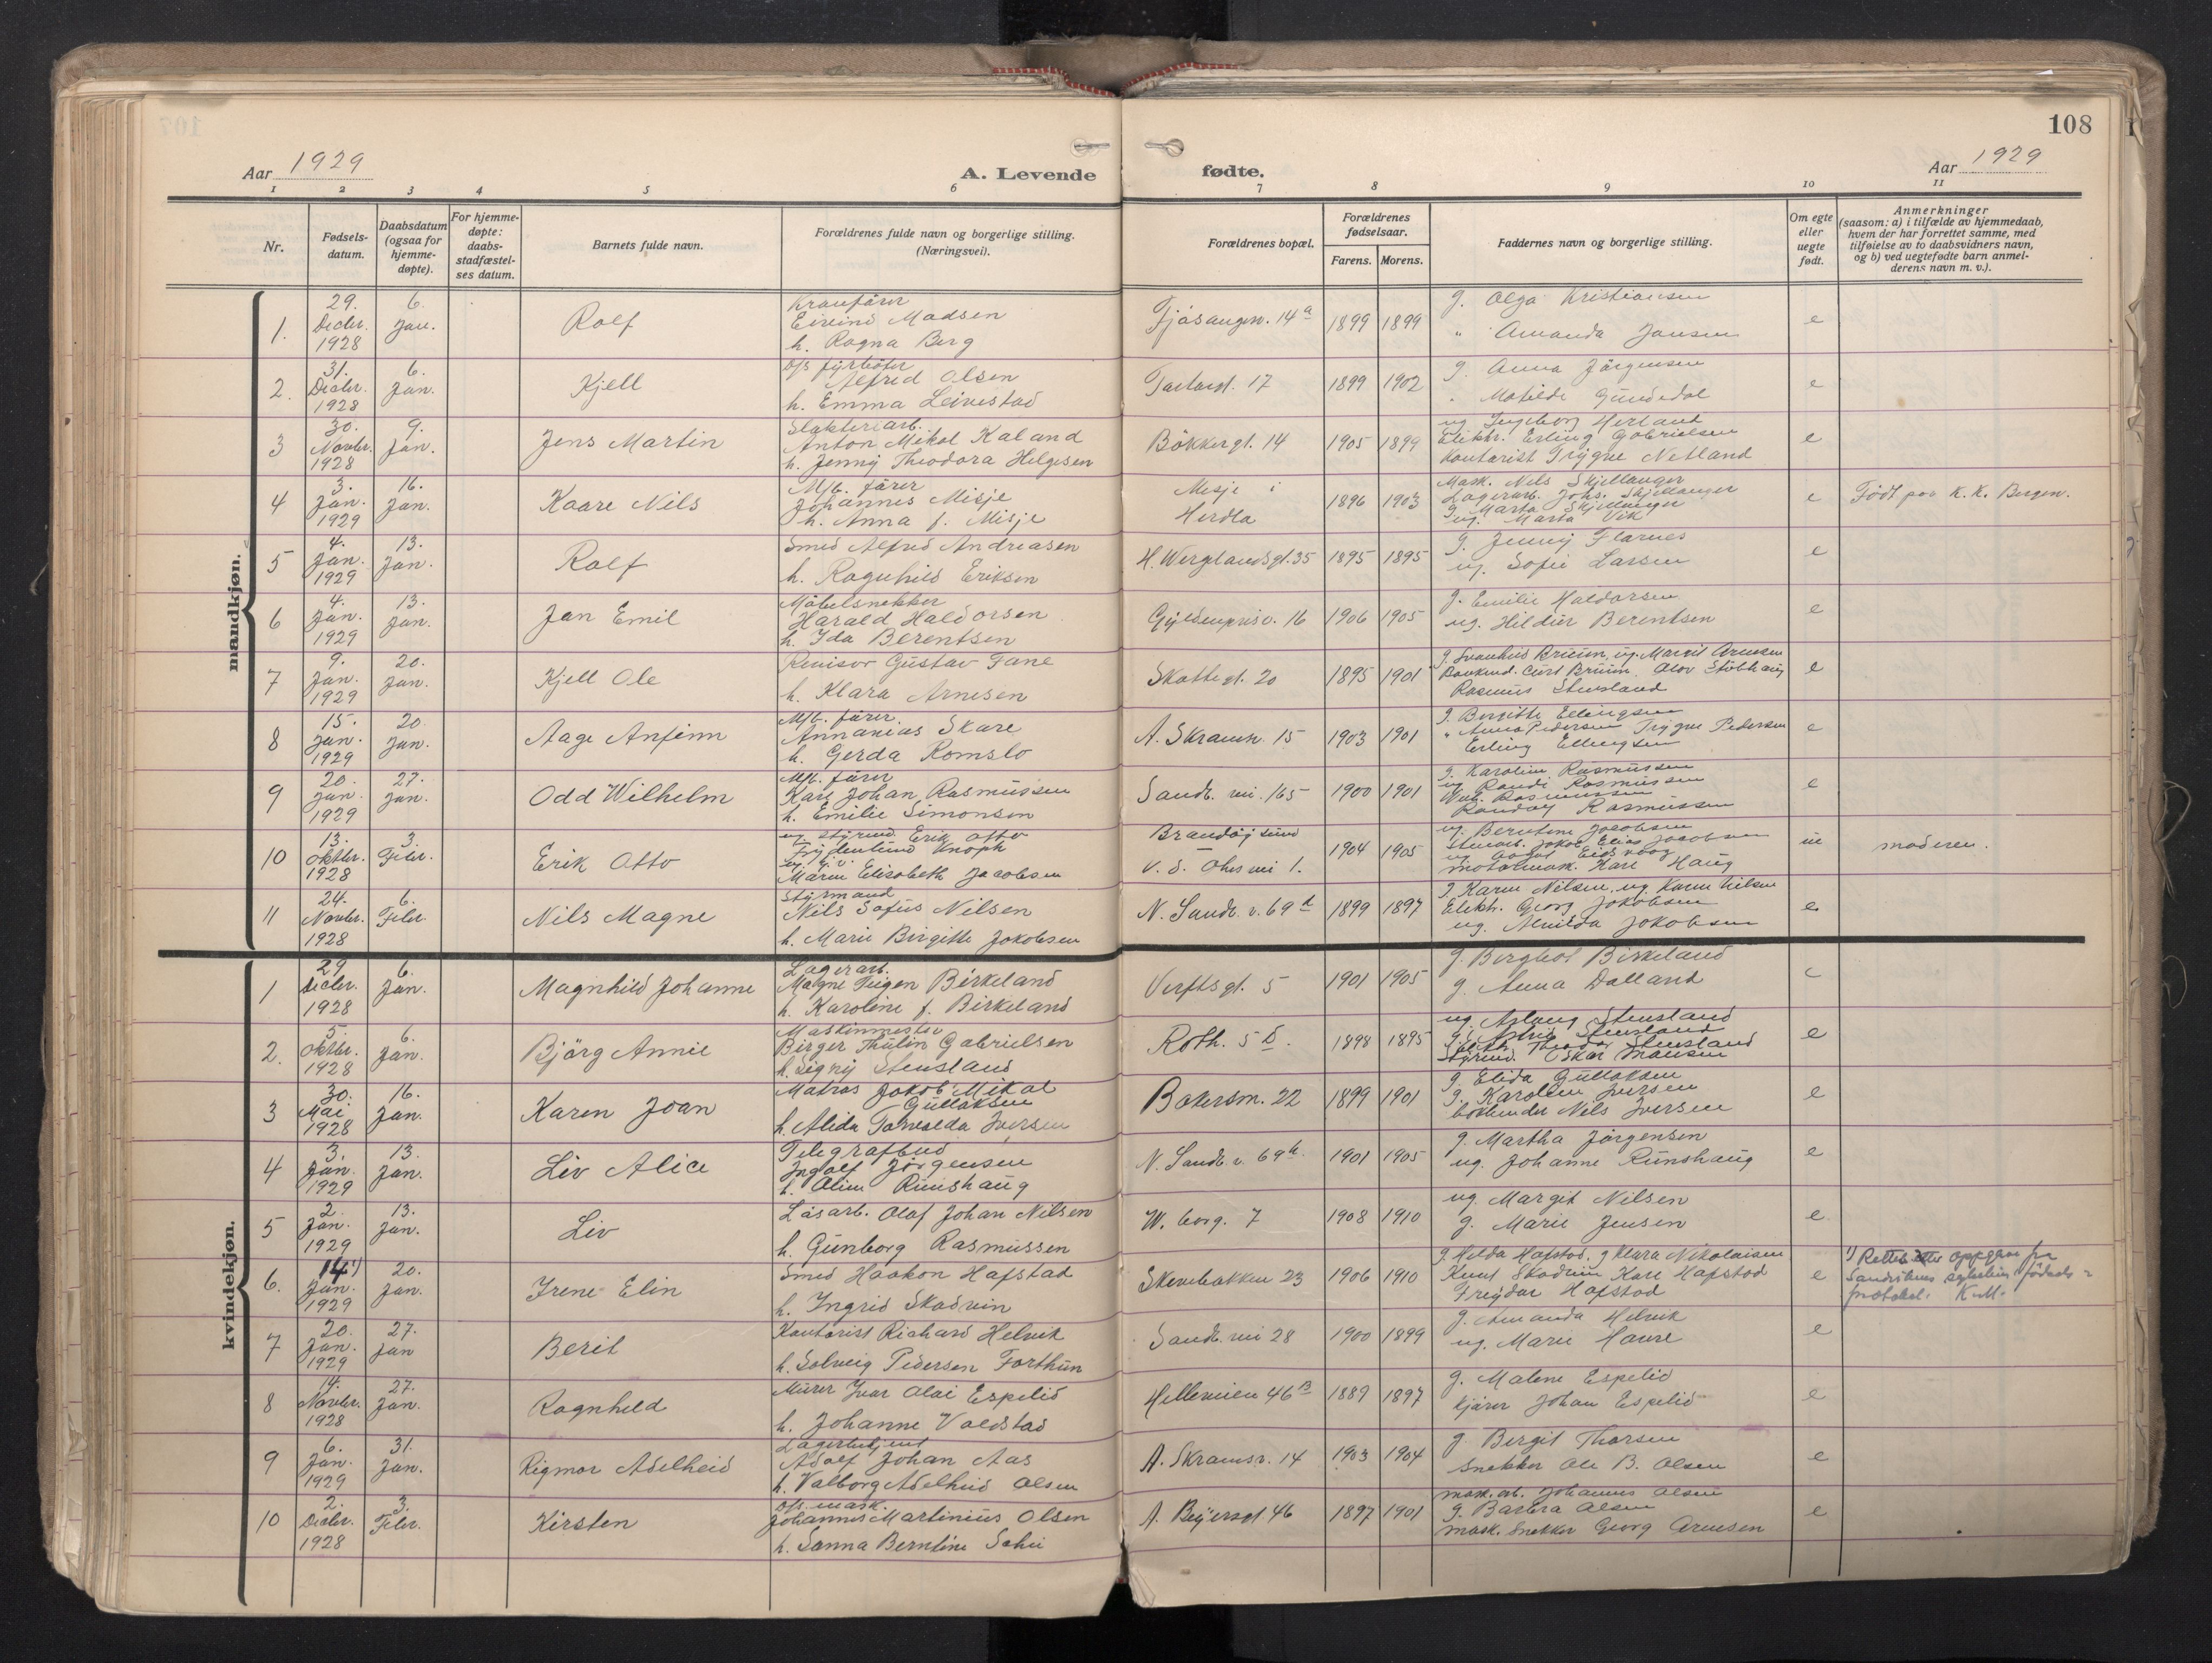 108
Aar 1929
A. Levende
fødte.
Aar 1929
1 2 3 4 5 6 7 8 9 10 11
Nr.
Fødsels-
datum.
Daabsdatum
(ogsaa for
hjemme-
døpte).
For hjemme-
døpte:
daabs-
stadfæstel-
ses datum.
Barnets fulde navn.
Forældrenes fulde navn og borgerlige stilling.
(Næringsvei).
Forældrenes bopæl.
Forældrenes
fødselsaar.
Farens. Morens.
Faddernes navn og borgerlige stilling.
Om egte
eller
uegte
født.
Anmerkninger
(saasom: a) i tilfælde av hjemmedaab,
hvem der har forrettet samme, med
tilføielse av to daabsvidners navn,
og b) ved uegtefødte barn anmel-
derens navn m. v.).
mandkjøn.
1. 29. Decbr. 1928 6. Jan. Rolf
Kranfører
Eivind Madsen
h. Ragna Berg
Fjøsangerv. 14a 1899 1899
g. Olga Kristiansen
" Amanda Jansen
e
2. 31. Decbr. 1928 6. Jan. Kjell
D/s fyrbøter
Alfred Olsen
h. Emma Leivestad
17 1899 1902
g. Anna Jørgensen
" Matilde
e
3 30. Novbr. 1928 9. Jan. Jens Martin
Slakteriarb.
Anton Mikal Kaland
h. Jenny Theodora Helgesen
Bökkergt. 14 1905 1899
ug. Ingeborg Herland
Elektr. Erling Gabrielsen
Kontorist Trygve Netland
e
4 3. Jan. 1929 16. Jan. Kaare Nils
M/b. fører
Johannes Misje
h. Anna f. Misje
Misje i
Herdla
1896 1903
Mask. Nils Skjellanger
Lagerarb. Johs. Skjellanger
g. Marta Skjellanger
ug. Marta Vik
e Født paa K. K. Bergen.
5 4. Jan. 1929 13. Jan. Rolf
Smed Alfred Andreasen
h. Ragnhild Eriksen
H. Werglandsgt. 35 1895 1895
g. Jenny Flarnes
ug. Sofie Larsen
e
6 4. Jan. 1929 13. Jan. Jan Emil
Møbelsnekker
Harald Haldorsen
h. Ida Berentsen
Gyldenprisv. 16 1906 1905
g. Emilie Haldorsen
ug. Hildur Berentsen
e
7 9. Jan. 1929 20. Jan. Kjell Ole
Revisor Gustav Fane
h. Klara Arnesen
Skottegt. 20 1895 1901
g. Svanhild Bruun, ug. Margit Arnesen
Curt Bruun. Olav
Rasmus Stensland
e
8 15. Jan. 1929 20. Jan. Aage Anfinn
M/b. fører.
Annanias Skare
h. Gerda Romslo
A. Skramsv. 15 1903 1901
g. Bergitte Ellingsen
" Anna Pedersen Trygve Pedersen
Erling Ellingsen
e
9 20. Jan. 1929 27. Jan. Odd Wilhelm
M/b. fører
Karl Johan Rasmussen
h. Emilie Simonsen
Sandv. vei. 165 1900 1901
g. Karoline Rasmussen
ug. Randi Rasmussen
Rasmussen
Rasmussen
e
10 13. Oktbr. 1928 3. Febr. Erik Otto
ug. Styrmd. Erik Otto
Frydenlund Knoph
Marie Elisabeth Jacobsen
Brandøysund
V. S. 1.
1904 1905
ug. Berntine Jacobsen
Jakob Elias Jacobsen
ug. Aagot Eidsvaag
Karl Haug
ue moderen.
11 24. Novbr. 1928 6. Febr. Nils Magne
Styrmand
Nils Sofus Nilsen
h. Marie Birgitte Jakobsen
N. Sandv. v. 69 1899 1897
g. Karen Nilsen, ug. Karen Nilsen
Elektr. Georg Jakobsen
ug. Alvilda Jakobsen
e
kvindekjøn.
1 29 Decbr. 1928 6. Jan. Magnhild Johanne
Lagerarb.
Magne Teigen Birkeland
h. Karoline f. Birkeland
Verftsgt. 5 1901 1905
g. Bergljot Birkeland
g. Anna Dalland
e
2. 5. Oktbr. 1928 6. Jan. Björg Annie
Maskinmester
Birger Thulin Gabrielsen
h. Signy Stensland
Roth. 5 b. 1898 1895
ug. Aslaug Stensland
g. Astrid Stensland
Elektr. Theodor Stensland
Styrmd. Oskar Hansen
e
3 30. Mai 1928 16. Jan. Karen Joan
Matros Jakob Mikal
Gullaksen
h. Alida Iversen
Bakersm. 22 1899 1901
g. Elida Gullaksen
g. Karoline Iversen
bokbinder Nils Iversen
e
4 3. Jan. 1929 13. Jan. Liv Alice
Telegrafbud
Ingolf Jørgensen
h. Oline Runshaug
N. Sandv. v. 69h. 1901 1905
g. Martha Jørgensen
ug. Johanne Runshaug
e
5 2. Jan. 1929 13. Jan. Liv
Løsarb. Olaf Johan Nilsen
h. Gunborg Rasmussen
W. borg. 7 1908 1910
ug. Margit Nilsen
g. Marie Jensen
e
6. 14 1) Jan. 1929 20. Jan. Irene Elin
Smed Haakon Hafstad
h. Ingrid Skadvin
Skivebakken 23 1906 1910
g. Helda Hafstad, g Klara Nikolaisen
Knut Skadvin Kare Hafstad
Freydar Hafstad
e 1) Rettet efter opgave fra
Sandvikens sykehus fødsels-
protokol. K.M.
7 20. Jan. 1929 27. Jan Berit
Kontorist Richard Helvik
h. Solveig Pedersen Forthun
Sandv. vei 28 1900 1899
g. Amanda Helvik
ug. Marie
e
8 14. Novbr. 1928 27. Jan. Ragnhild
Murer Ivar Olai Espelid
h. Johanne Valdstad
Helleveien 46B 1889 1897
g. Malene Espelid
kjører Johan Espelid
e
9 6. Jan. 1929 31. Jan. Rigmor Adelheid
Lagerbetjent
Adolf Johan Aas
h. Valborg Adelheid Olsen
A. Skramsv. 14 1903 1904
g. Bergit Thorsen
Snekker Ole B. Olsen
e
10 2. Decbr. 1928 3. Febr. Kirsten
D/s. mask.
Johannes Martinius Olsen
h. Sanna Berntine Sahli
A. Beyersgt 46 1897 1901
mask. arb. Johannes Olsen
g. Barbra Olsen
mask. Snekker Georg Arnesen
e